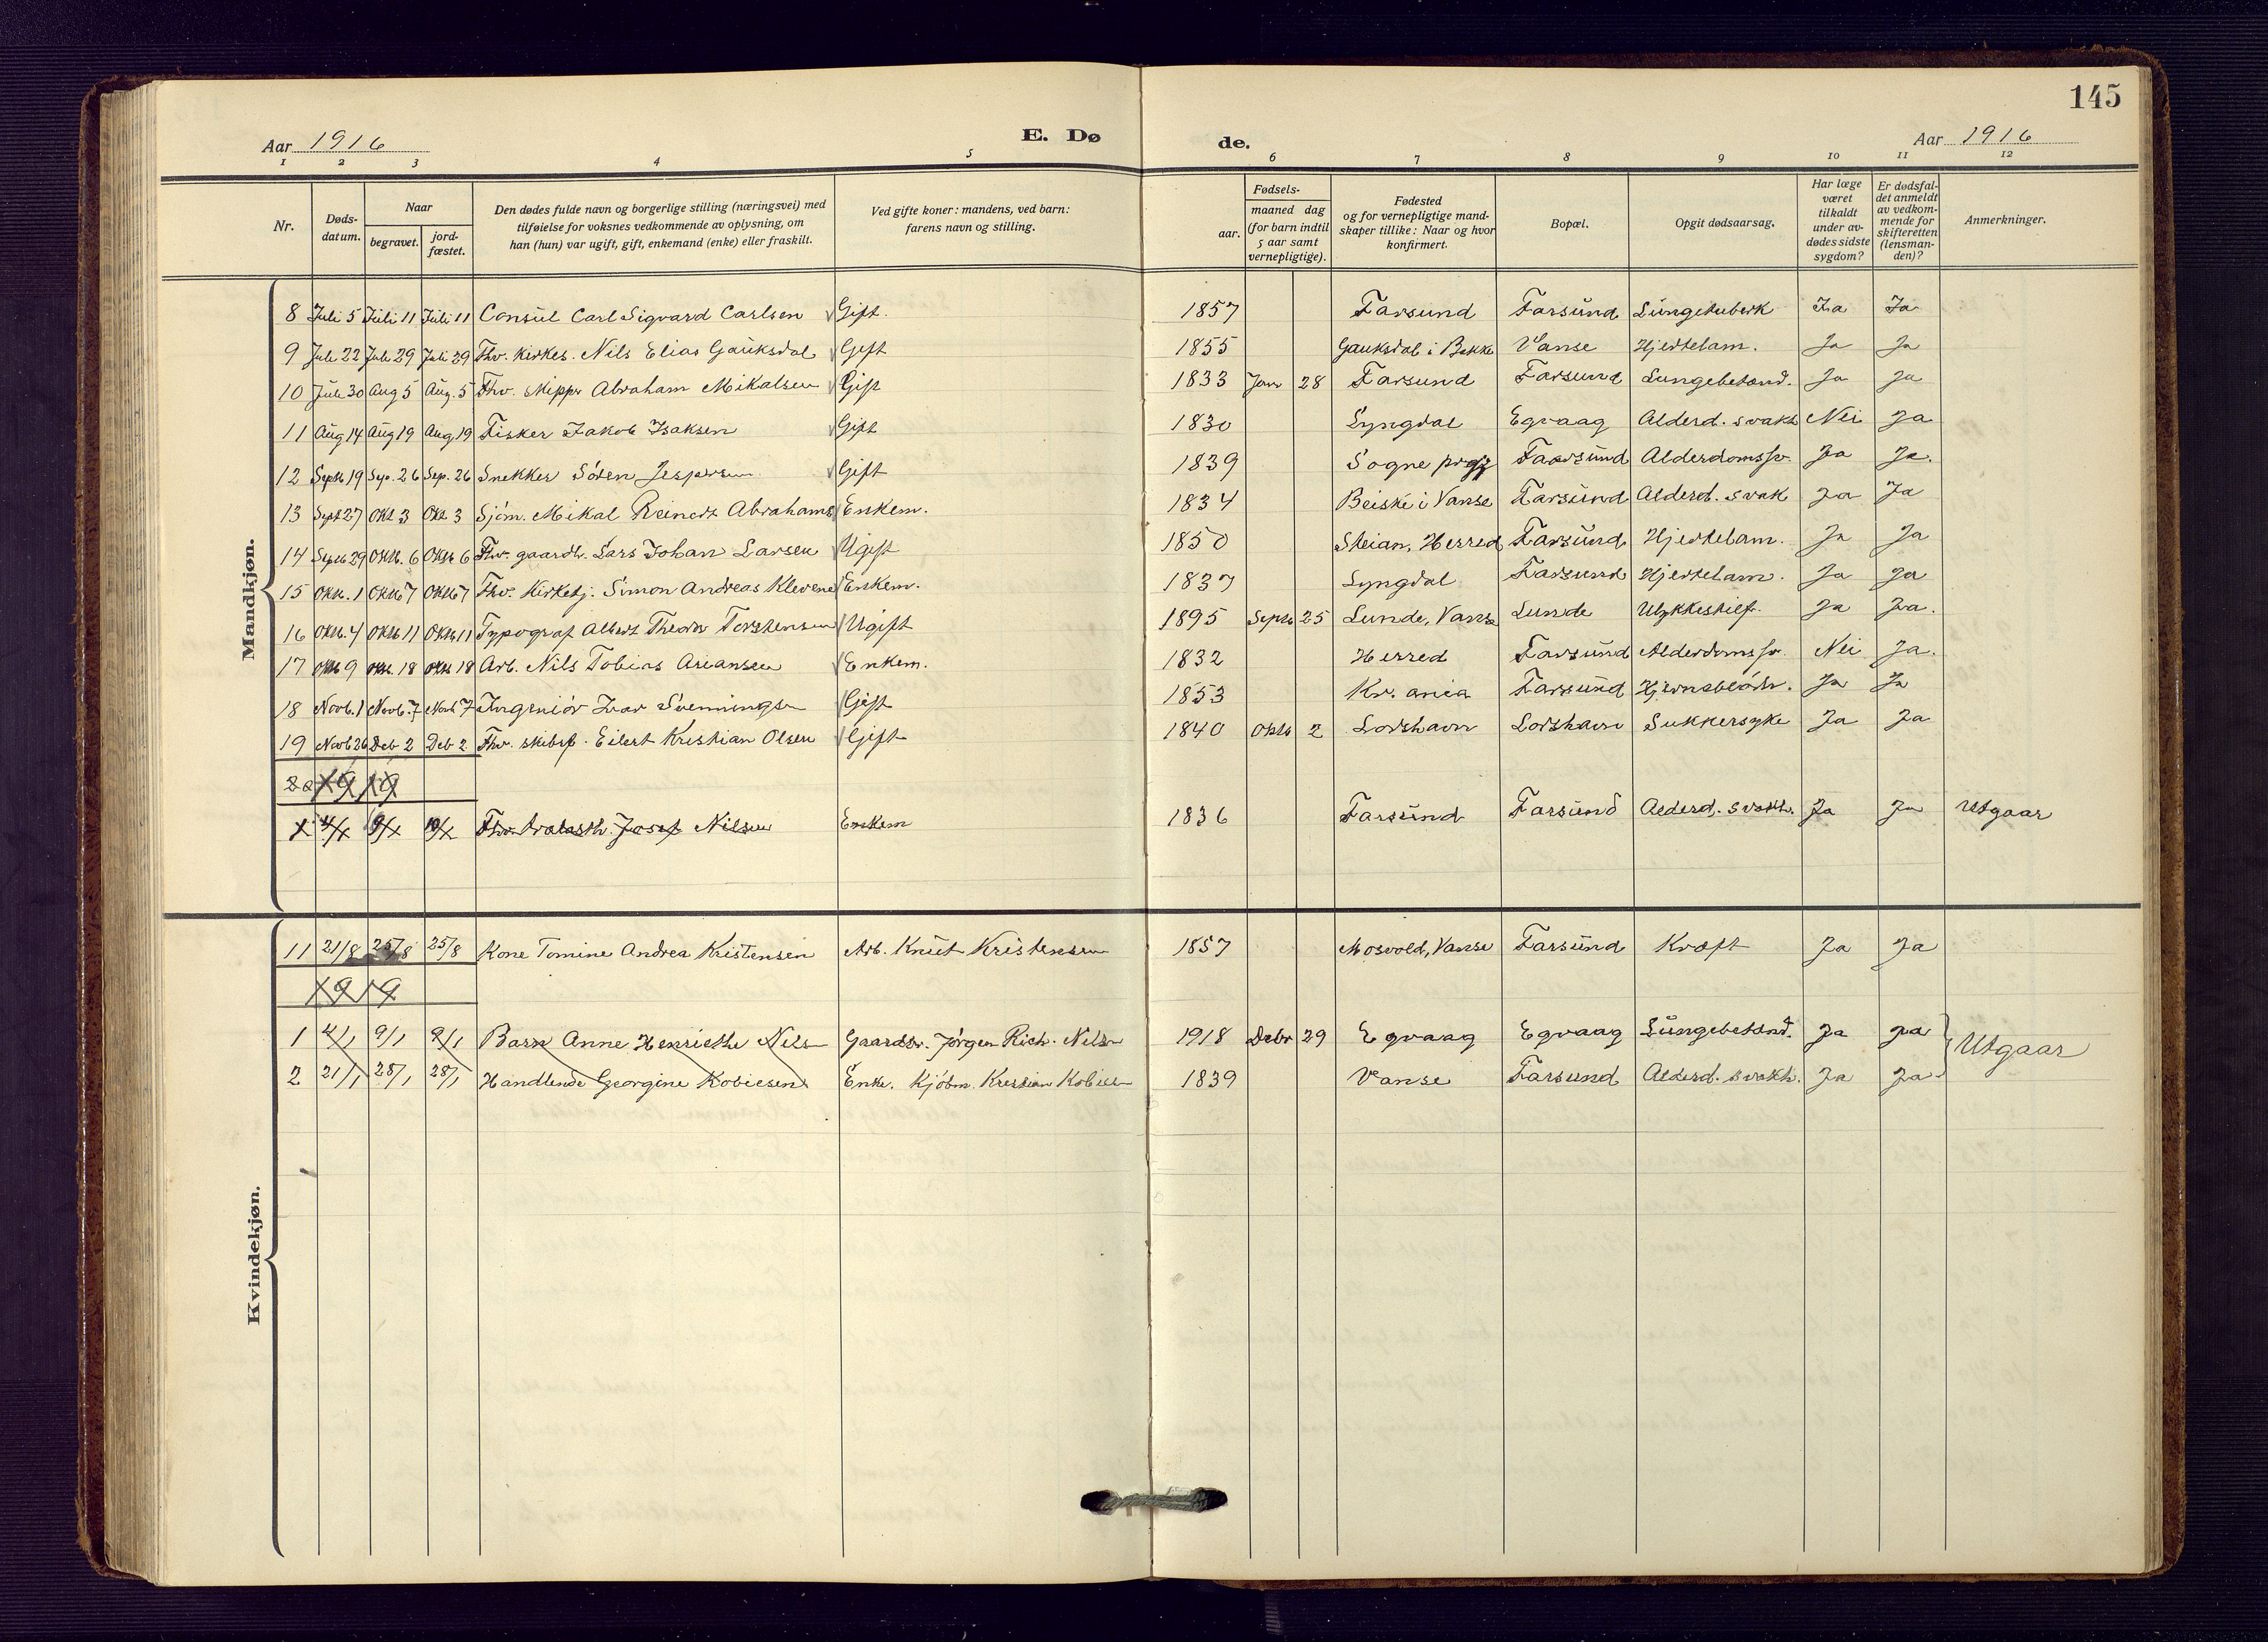 145
Aar 1916
E. Dø
de.
Aar 1916
1 2 3 4 5 6 7 8 9 10 11 12
Nr.
Døds-datum.
Naar
begravet.
jord-fæstet.
Den dødes fulde navn og borgerlige stilling (næringsvei) med
tilføielse for voksnes vedkommende av oplysning, om
han (hun) var ugift, gift, enkemand (enke) eller fraskilt.
Ved gifte koner: mandens, ved barn:
farens navn og stilling.
Fødsels-
aar.
maaned dag
(for barn indtil
5 aar samt
vernepligtige).
Fødested
og for vernepligtige mand-
skaper tillike: Naar og hvor
konfirmert.
Bopæl.
Opgit dødsaarsag.
Har læge
været
tilkaldt
under av-
dødes sidste
sygdom?
Er dødsfal-
det anmeldt
av vedkom-
mende for
skifteretten
(lensman-
den)?
Anmerkninger.
Mandkjøn.
8 Juli 5 Juli 11 Juli 11 Consul Carl Sigvard Carlsen Gift. 1857 Farsund Farsund Lungetuberk Ja Ja
9 Juli 22 Juli 29 Juli 29 Fhv. kirkes. Nils Elias Gauksdal Gift 1855 Gauksdal i Bakke Vanse Hjertelam. Ja Ja
10 Juli 30 Aug 5 Aug. 5 Fhv. skippr Abraham Mikalsen Gift 1833 Janr 28 Farsund Farsund Lungebetænd. Ja Ja
11 Aug 14 Aug 19 Aug 19 Fisker Jakob Isaksen Gift 1830 Lyngdal Egvaag Alderd. svakh Nei Ja
12 Septb 19 Sep. 26 Sep. 26 Snekker Sören Jespersen Gift 1839 Sogne prgj Farsund Alderdomssv. Ja Ja.
13 Sept 27 Okt 3 Okt 3 Sjöm. Mikal Reinert Abrahams Enkem. 1834 Beiske i Vanse Farsund Alderd. svak Ja Ja
14 Septb 29 Oktb. 6 Oktb 6 Fhv. gaardbr. Lars Johan Larsen Ugift 1850 Steian, Herred Farsund Hjertelam. Ja Ja
15 Oktb. 1 Oktb 7 Oktb 7 Fhv. Kirketj. Simon Andreas Klevene Enkem. 1837 Lyngdal Farsund Hjertelam. Ja Ja
16 Oktb. 4 Oktb 11 Oktb 11 Typograf Albert Theodr Torstensen Ugift 1895 Septb 25 Lunde, Vanse Lunde Ulykkestilf. Ja Ja.
17 Oktb 9 Oktb. 18 Oktb 18 Arb. Nils Tobias Arlansen Enkem. 1832 Herred Farsund Alderdomssv. Nei Ja.
18 Novb. 1 Novb. 7 Novb 7 Ingeniör Ivar Svennings Gift 1853 Kr. ania Farsund Hjerneblödn. Ja Ja
19 Novb 26 Deb 2 Deb 2 Fhv. skibsf. Eilert Kristian Olsen Gift 1840 Oktb 2 Loshavn Loshavn Sukkersyke Ja Ja
20 1919
1 4/1 9/1 10/1 Fhv. Josef Nilsen Enkem 1836 Farsund Farsund Alderd. svakh. Ja Ja Utgaar
Kvindekjøn.
11 21/8 25/8 25/8 Kone Tomine Andrea Kristensen Arb. Knut Kristensen 1857 Mosvold, Vanse Farsund Kræft Ja Ja
1919
1 4/1 9/1 9/1 Barn Anne Henriette Nils Gaardbr. Jörgen Rich. Nilsen 1918 Debr 29 Egvaag Egvaag Lungebetænd. Ja Ja
Utgaar
2 21/1 28/1 28/1 Handlende Georgine Kobiesen Enke. Kjöbm. Kristian Kobiesen 1839 Vanse Farsund Alderd. svakh. Ja Ja